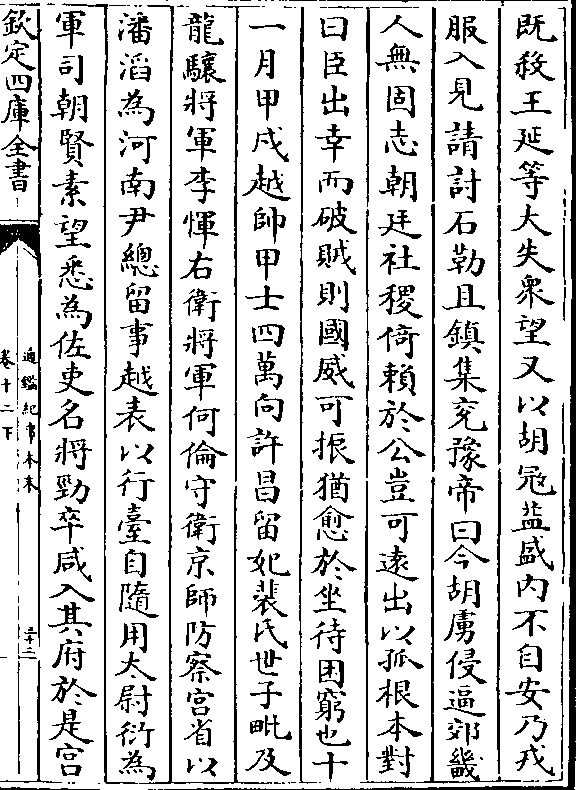 既殺王延等大失衆望又以胡冦益盛内不自安乃戎
服入見請討石勒且鎮集兖豫帝曰今胡虜侵逼郊畿
人無固志朝廷社稷倚賴於公豈可遠出以孤根本對
曰臣出幸而破賊則國威可振猶愈於坐待困窮也十
一月甲戌越帥甲士四萬向許昌留妃裴氏世子毗及
龍驤將軍李惲右衛將軍何倫守衛京師防察宫省以
潘滔為河南尹總留事越表以行臺自隨用太尉衍為
軍司朝賢素望悉為佐吏名將勁卒咸入其府於是宫
欽定四庫全書
通鑑紀事本末
卷十二下
三十三